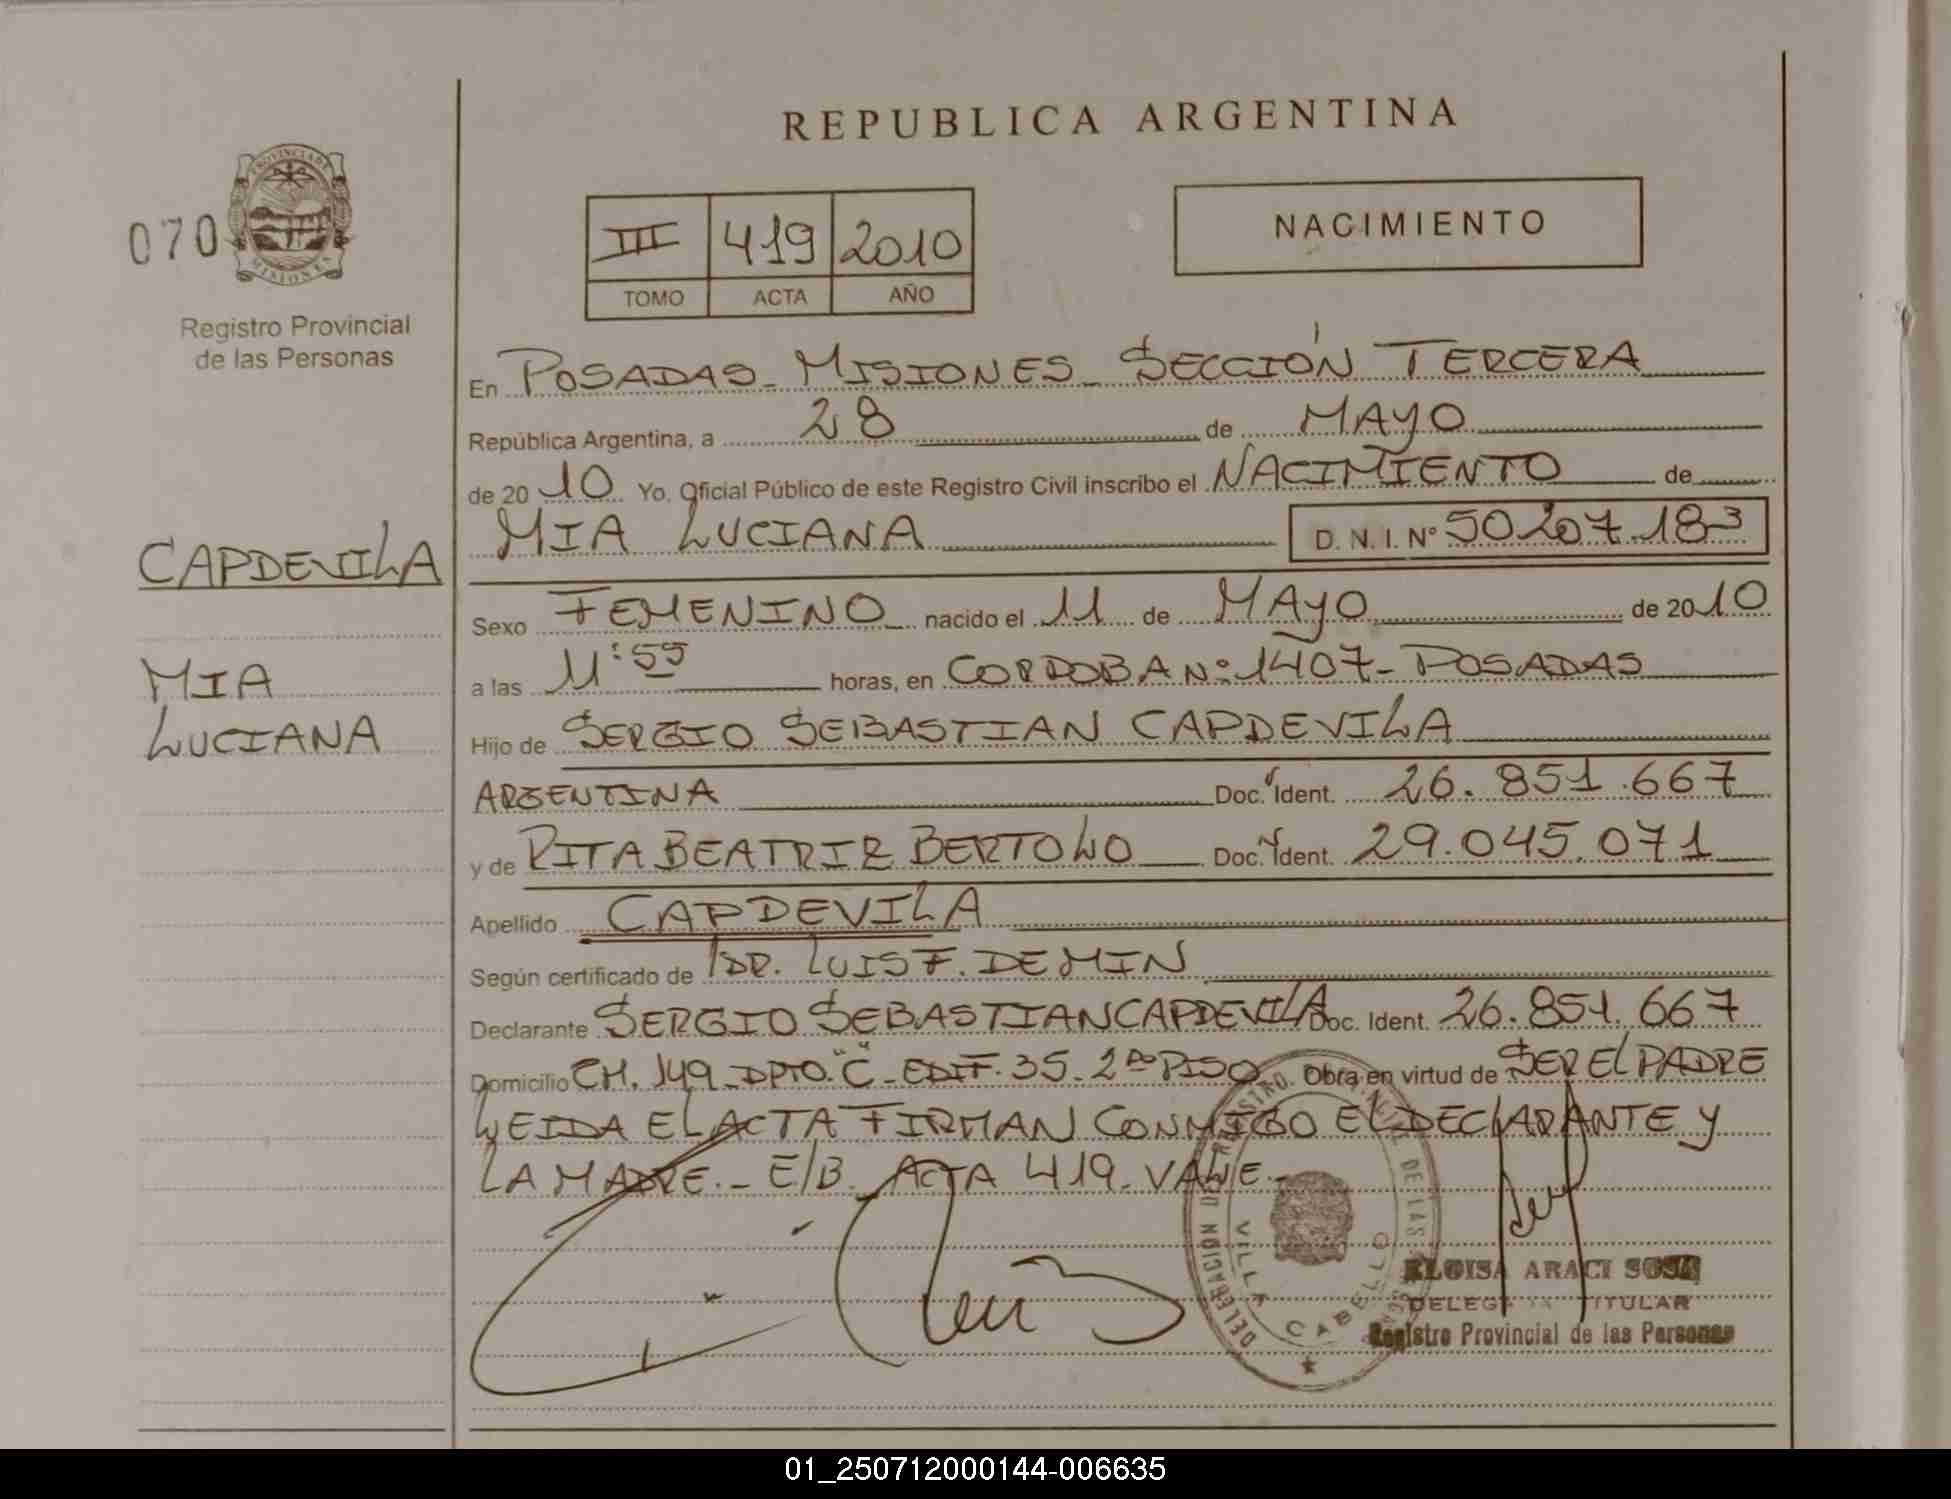 REPUBLICA ARGENTINA
070
PROVINCIA DE
MISIONES
Registro Provincial
de las Personas
III 419 2010
TOMO ACTA AÑO
NACIMIENTO
En POSADAS - MISIONES - SECCIÓN TERCERA
República Argentina, a 28 de MAYO
de 2010 Yo, Oficial Público de este Registro Civil inscribo el NACIMIENTO de
MIA LUCIANA D. N. I. Nº 50.207.183
CAPDEVILA
MIA
LUCIANA
Sexo FEMENINO nacido el 11 de MAYO de 2010
a las 11:59 horas, en CORDOBA Nº 1407 - POSADAS
Hijo de SERGIO SEBASTIAN CAPDEVILA
ARGENTINA Doc. Ident. 26.851.667
y de RITA BEATRIZ BERTOLO Doc. Ident. 29.045.071
Apellido CAPDEVILA
Según certificado de DR. LUIS F. DEMIN
Declarante SERGIO SEBASTIAN CAPDEVILA Doc. Ident. 26.851.667
Domicilio CH. 149 - DPTO. "C" - EDIF. 35 - 2do PISO Obra en virtud de SER EL PADRE
LEIDA EL ACTA FIRMAN CONMIGO EL DECLARANTE Y
LA MADRE. - E/B. ACTA 419 - VALE. -
DELEGACION DEL REGISTRO DE LAS
VILLA CABELLO
ELOISA ARACI SOSA
TITULAR
Registro Provincial de las Personas
01_250712000144-006635